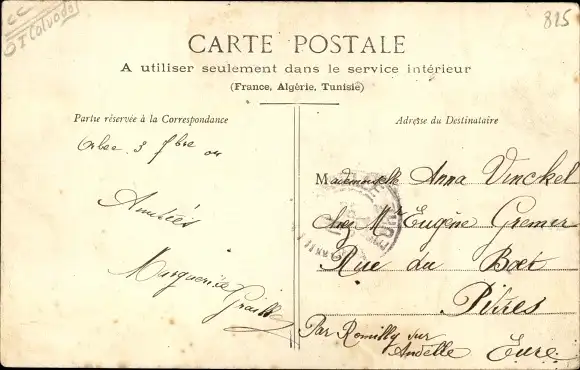 815
CARTE POSTALE
A utiliser seulement dans le service intérieur
(France, Algérie, Tunisie)
Partie réservée à la Correspondance
Adresse du Destinataire
Orbec 3 bre 04
Amitiés
Marguerite
Mademoiselle Anna Vinckel
chez Mr Eugène Gremer
Rue du Boet
Pitres
Par Romilly sur
Andelle Eure